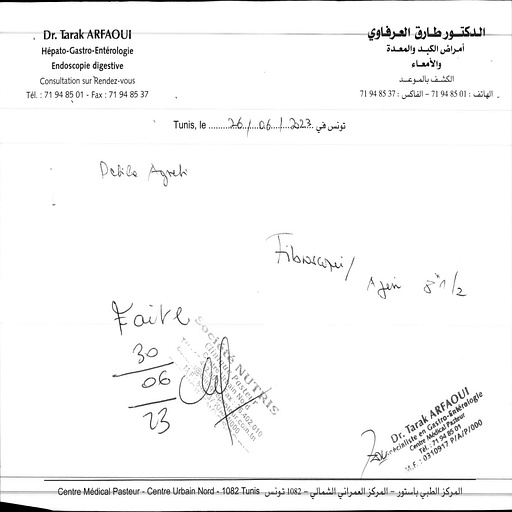 Dr. Tarak ARFAOUI
Hépato-Gastro-Entérologie
Endoscopie digestive
Consultation sur Rendez-vous
Tél. : 71 94 85 01 - Fax : 71 94 85 37
الدكتـور طارق العرفاوي
أمراض الكبد والمعدة
والأمعاء
الكشف بالموعد
الهاتف : 01 85 94 71 – الفاكس : 37 85 94 71
Tunis, le 26/06/2023 تونس في
Fibroscopie/
8h 1/2
Faite
30
06
23
Société NUTRIS
Clinique Pasteur
Centre Urbain Nord
Dr. Tarak ARFAOUI
Spécialiste en Gastro-Entérologie
Centre Médical Pasteur
Tél.: 71 94 85 01
M.F.: 0310917 P/A/P/000
Centre Médical Pasteur - Centre Urbain Nord - 1082 Tunis المركز الطبي باستور – المركز العمراني الشمالي – 1082 تونس